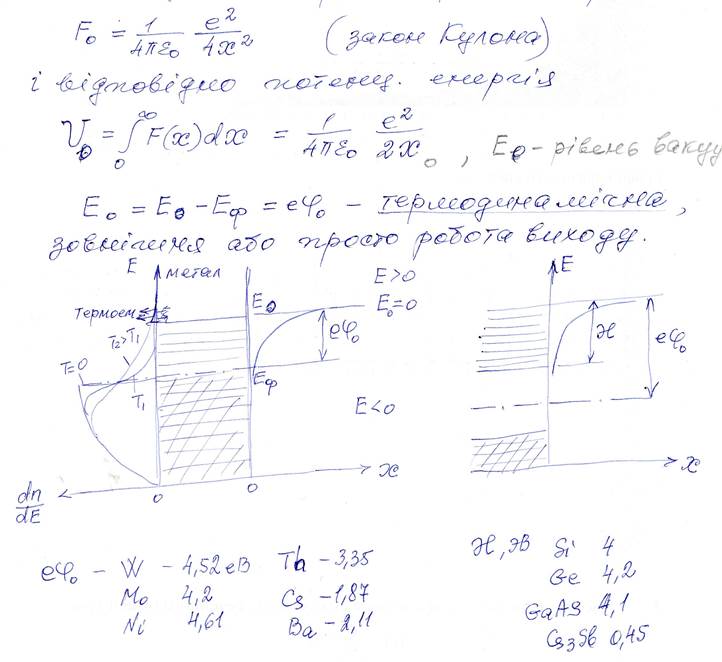 F₀ = 1/4πε₀ e²/4x² (закон Кулона)
і відповідно потенц. енергія
U₀ = ∫₀^∞ F(x)dx = 1/4πε₀ e²/2x₀, E₀ - рівень вакуу
E₀ = E₀ - Eф = eφ₀ - термодинамічна,
зовнішня або просто робота виходу.
E метал
E>0
E
термоем
E₀
E₀=0
T₂>T₁
eφ₀
ϰ
eφ₀
T=0
T₁
Eф
E<0
x
x
dn/dE
0
0
eφ₀ - W - 4,52 eВ Th - 3,35
Mo 4,2 Cs - 1,87
Ni 4,61 Ba - 2,11
ϰ, эВ Si 4
Ge 4,2
GaAs 4,1
Cs₃Sb 0,45